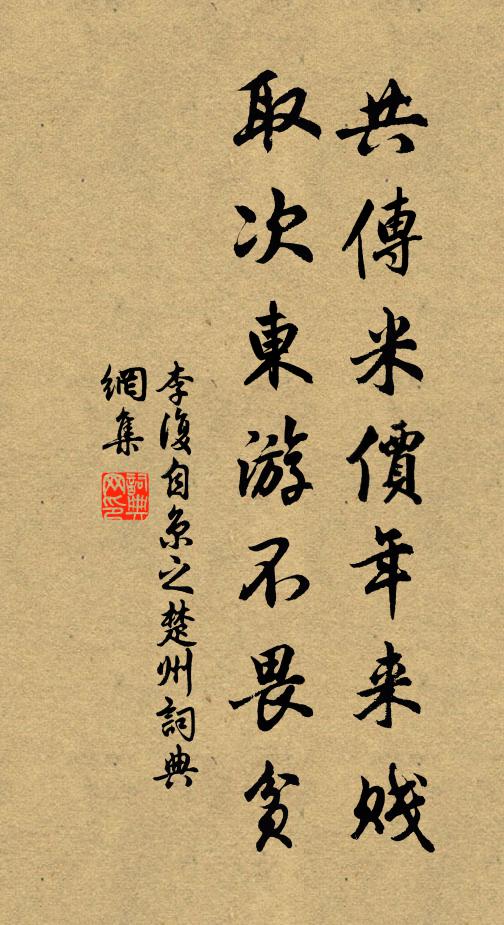 共傳米價年来賤
取次東游不畏貧
李復自京之楚州詞典
網集
詞典
网印